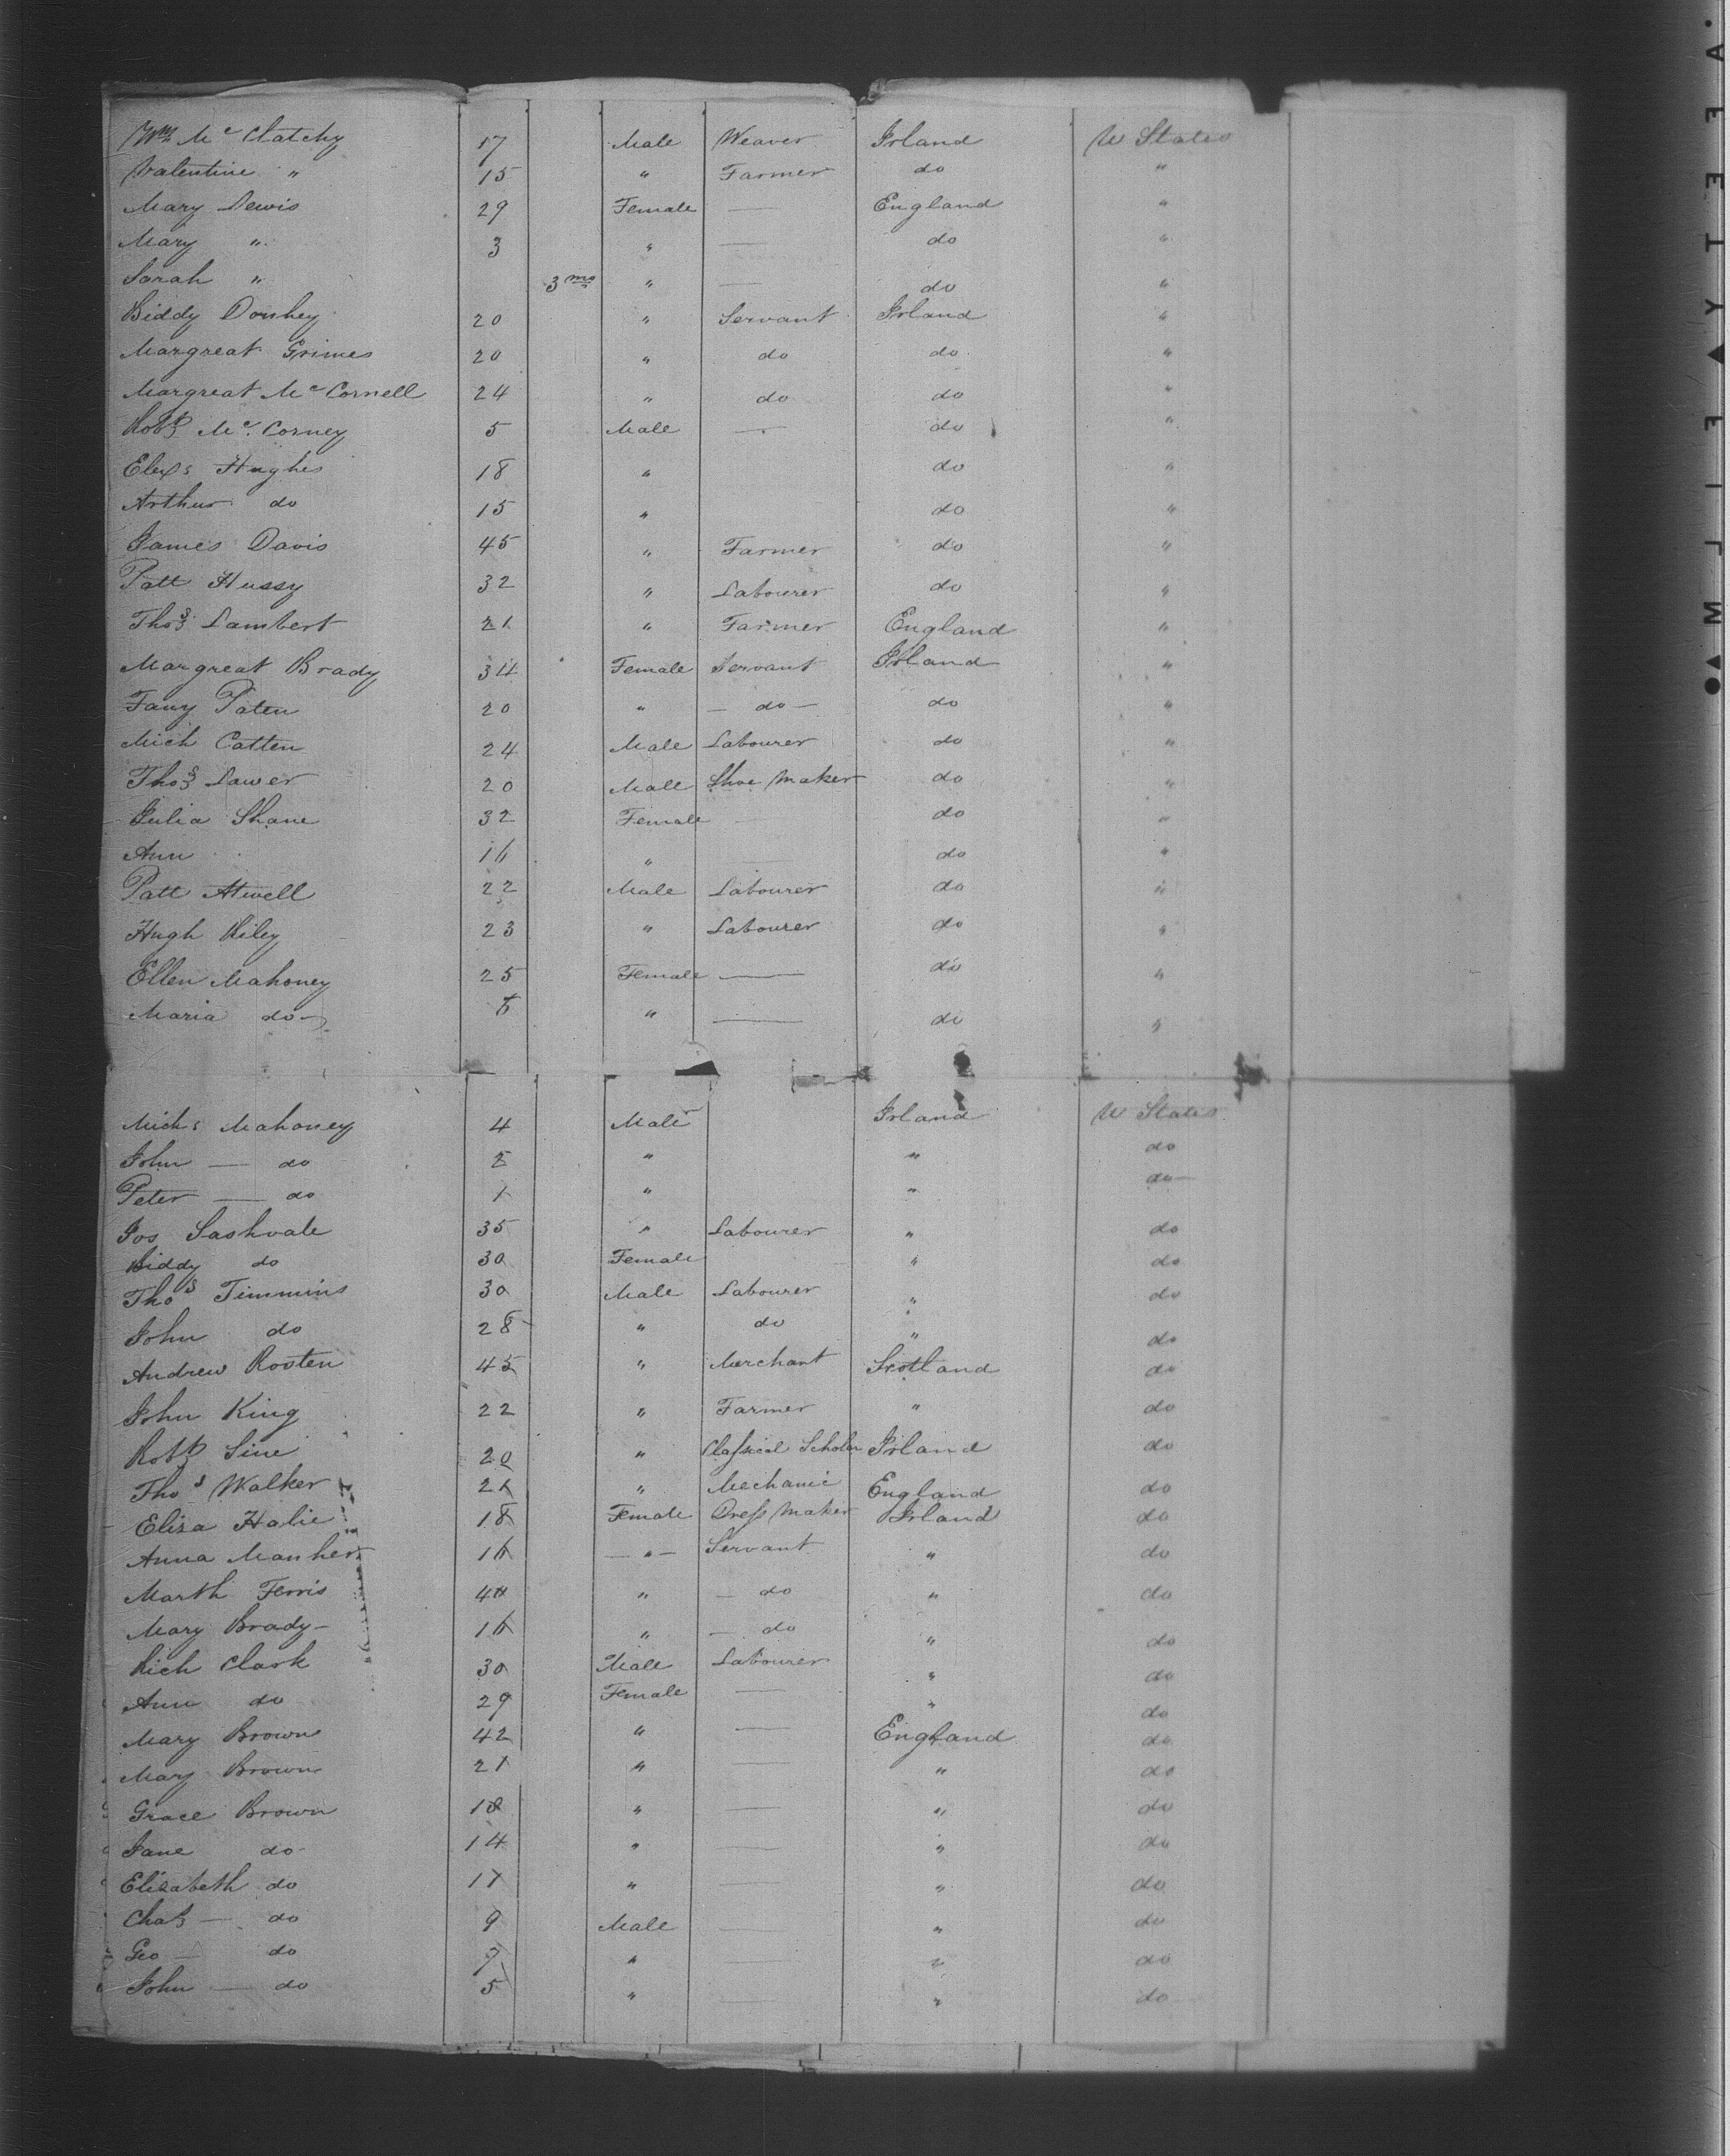 Wm Mc Clatchy 17 Male Weaver Irland U States
Valentine " 15 " Farmer do "
Mary Lewis 29 Female — England "
Mary " 3 " — do "
Sarah " 3 mo " — do "
Biddy Donhey 20 " Servant Irland "
Margreat Grimes 20 " do do "
Margreat Mc Cornell 24 " do do "
Robt Mc Corney 5 Male — do "
Elexs Hughes 18 " do "
Arthur do 15 " do "
James Davis 45 " Farmer do "
Patt Hussy 32 " Labourer do "
Thos Lambert 21 " Farmer England "
Margreat Brady 34 Female Servant Irland "
Fany Paten 20 " — do — do "
Mich Catten 24 Male Labourer do "
Thos Lawer 20 Male Shoe Maker do "
Julia Shane 32 Female do "
Ann 16 " — do "
Patt Atwell 22 Male Labourer do "
Hugh Riley 23 " Labourer do "
Ellen Mahoney 25 Female — do "
Maria do 6 " — do "
Michs Mahoney 4 Male Irland U States
John — do 2 " " do
Peter — do 1 " " do
Jos Sashvale 35 " Labourer " do
Biddy do 30 Female " do
Thos Timmins 30 Male Labourer " do
John do 28 " do " do
Andrew Rooten 45 " Merchant Scotland do
John King 22 " Farmer " do
Robt Sine 20 " Classical Scholar Irland do
Thos Walker 21 " Mechanic England do
Eliza Halie 18 Female Dress Maker Irland do
Anna Manher 16 — " — Servant " do
Marth Ferris " — do " do
Mary Brady 16 " — do " do
Rich Clark 30 Male Labourer " do
Ann do 29 Female — " do
Mary Brown 42 " — England do
Mary Brown 21 " — " do
Grace Brown 18 " — " do
Jane do 14 " — " do
Elizabeth do 11 " — " do
Chas — do 9 Male — " do
Geo — do 7 " — " do
John — do 5 " — " do